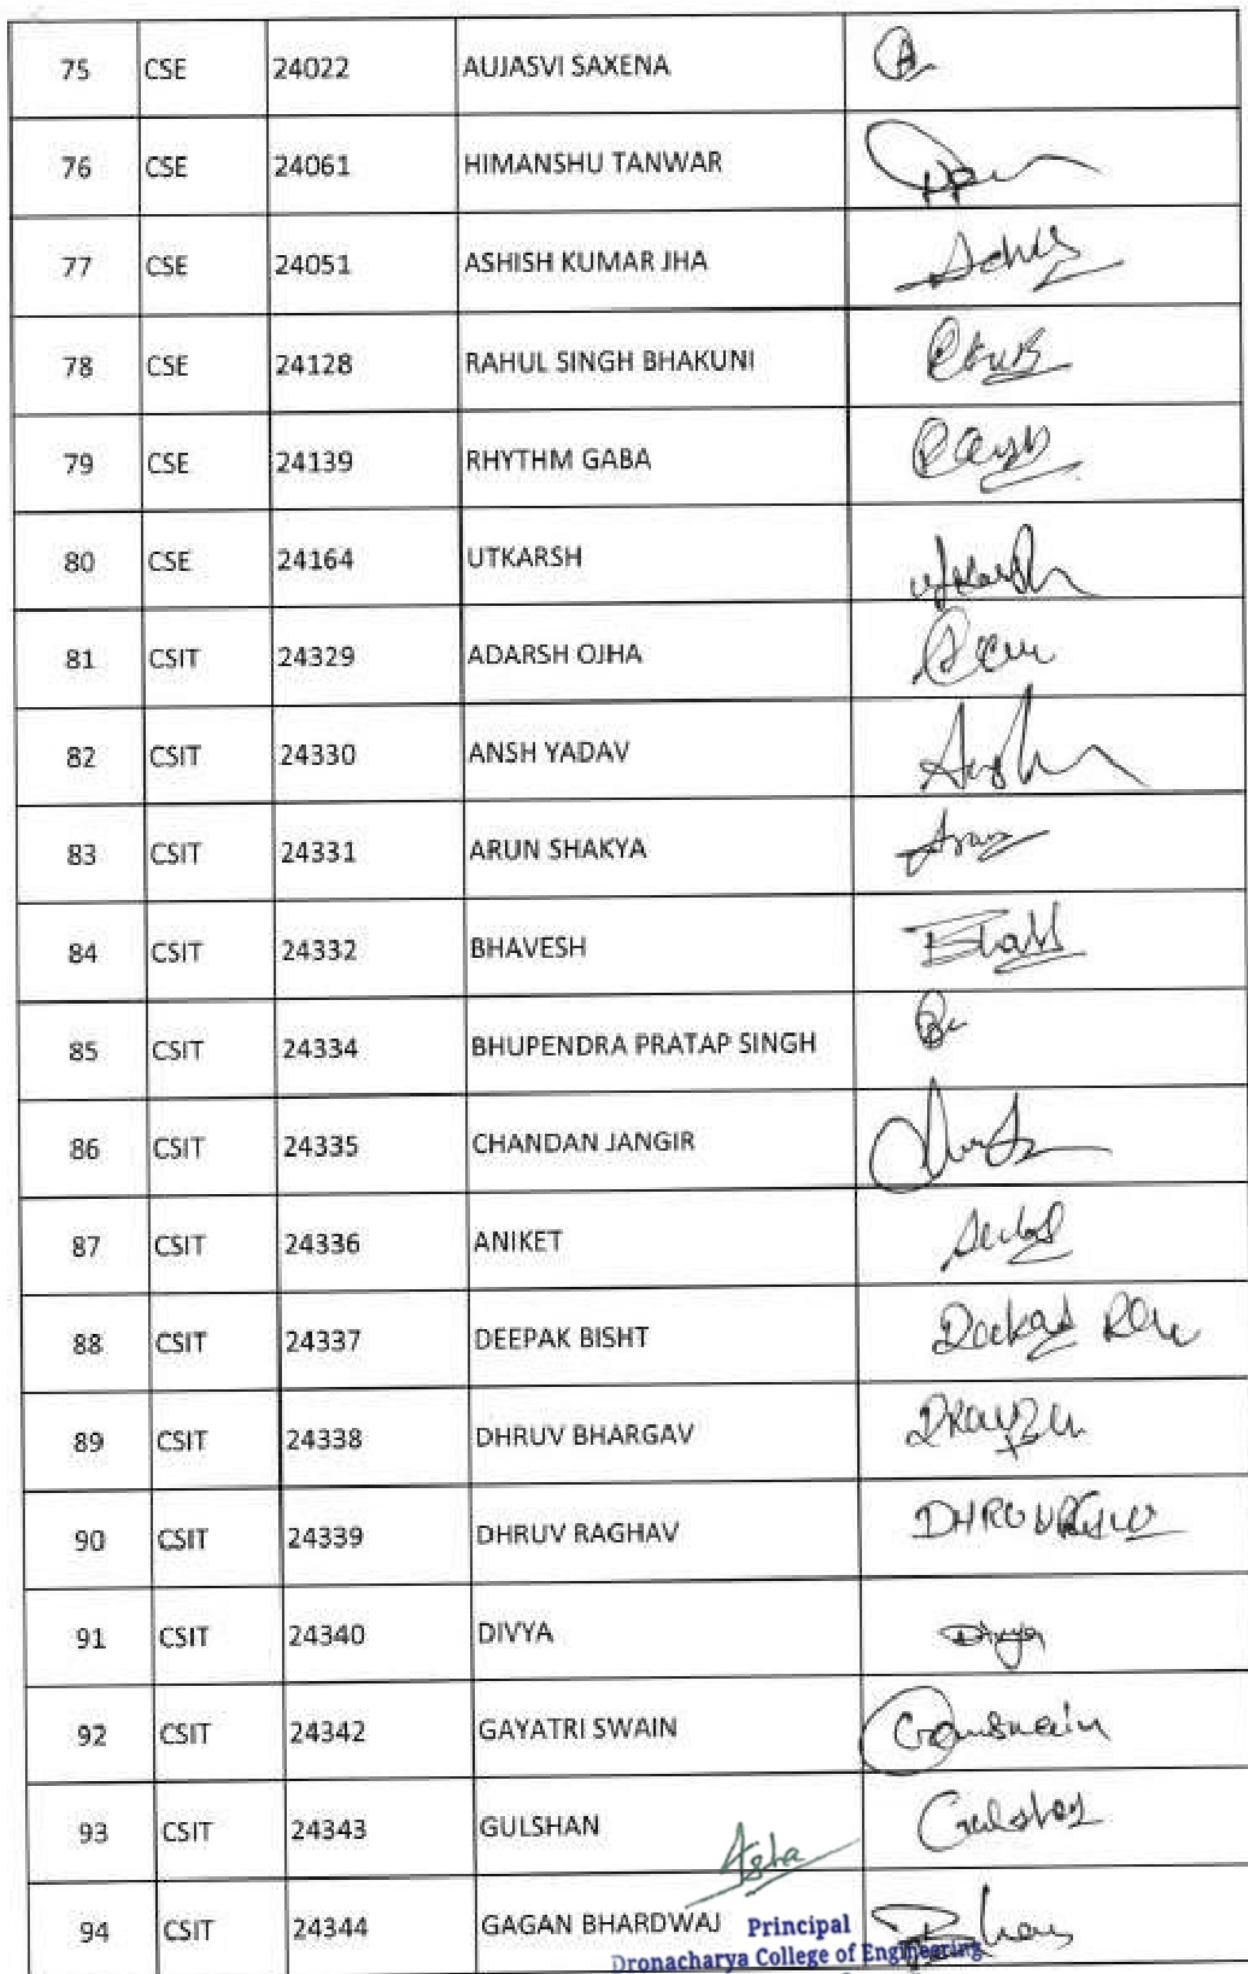 75 CSE 24022 AUJASVI SAXENA
76 CSE 24061 HIMANSHU TANWAR
77 CSE 24051 ASHISH KUMAR JHA
78 CSE 24128 RAHUL SINGH BHAKUNI
79 CSE 24139 RHYTHM GABA
80 CSE 24164 UTKARSH utkarsh
81 CSIT 24329 ADARSH OJHA
82 CSIT 24330 ANSH YADAV
83 CSIT 24331 ARUN SHAKYA
84 CSIT 24332 BHAVESH
85 CSIT 24334 BHUPENDRA PRATAP SINGH
86 CSIT 24335 CHANDAN JANGIR
87 CSIT 24336 ANIKET
88 CSIT 24337 DEEPAK BISHT
89 CSIT 24338 DHRUV BHARGAV
90 CSIT 24339 DHRUV RAGHAV
91 CSIT 24340 DIVYA Divya
92 CSIT 24342 GAYATRI SWAIN
93 CSIT 24343 GULSHAN
Asha
94 CSIT 24344 GAGAN BHARDWAJ
Principal
Dronacharya College of Engineering